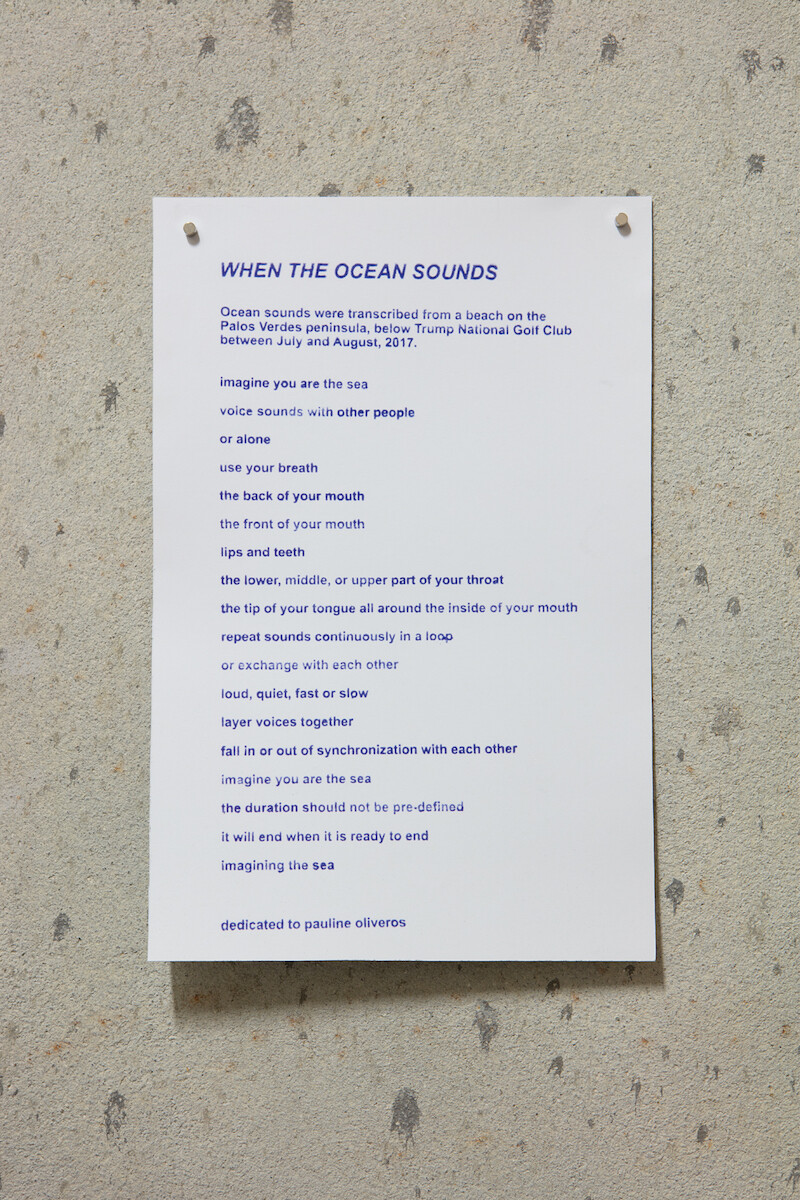 WHEN THE OCEAN SOUNDS
Ocean sounds were transcribed from a beach on the
Palos Verdes peninsula, below Trump National Golf Club
between July and August, 2017.
imagine you are the sea
voice sounds with other people
or alone
use your breath
the back of your mouth
the front of your mouth
lips and teeth
the lower, middle, or upper part of your throat
the tip of your tongue all around the inside of your mouth
repeat sounds continuously in a loop
or exchange with each other
loud, quiet, fast or slow
layer voices together
fall in or out of synchronization with each other
imagine you are the sea
the duration should not be pre-defined
it will end when it is ready to end
imagining the sea
dedicated to pauline oliveros